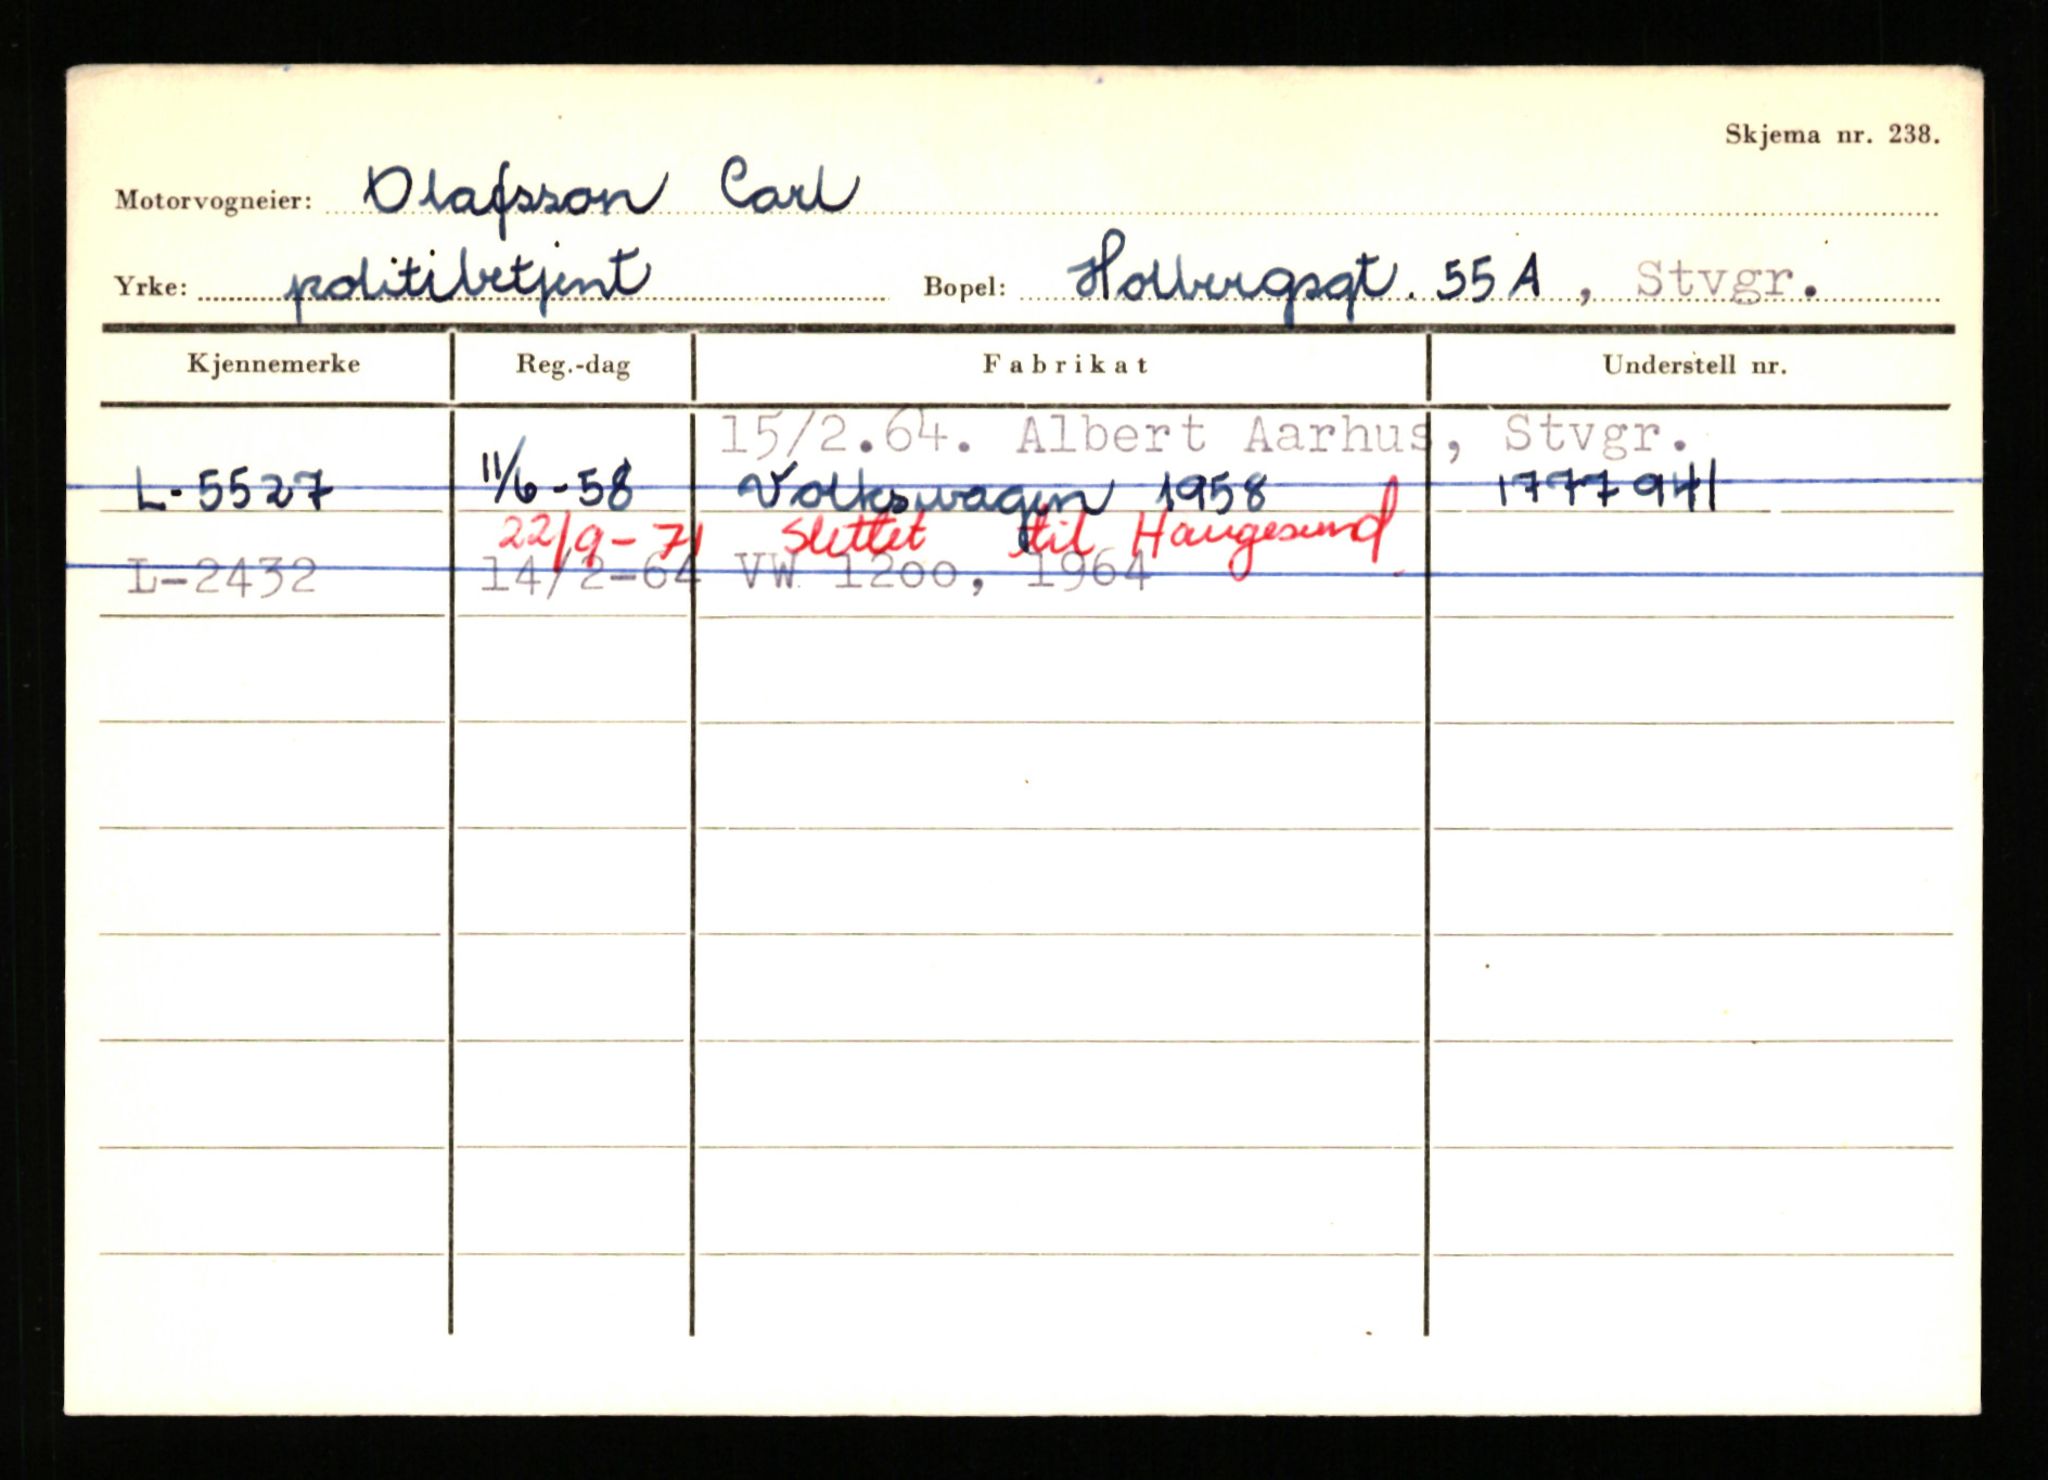 Skjema nr. 238.
Motorvogneier: Olafsson Carl
Yrke: politibetjent Bopel: Holbergsgt. 55 A, Stvgr.
Kjennemerke Reg.-dag Fabrikat Understell nr.
15/2.64. Albert Aarhus, Stvgr.
L-5527 11/6-58 Volkswagen 1958 1777941
22/9-71 Slettet til Haugesund
L-2432 14/2-64 VW 1200, 1964